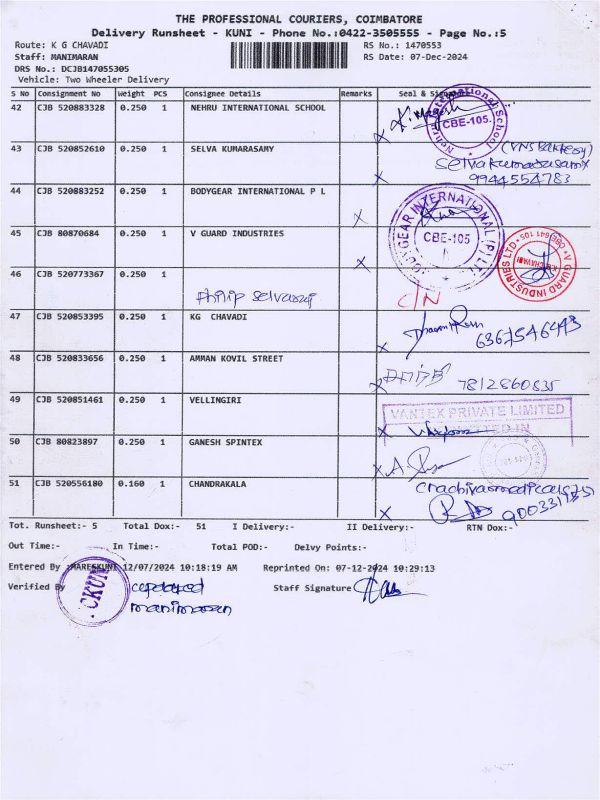 THE PROFESSIONAL COURIERS, COIMBATORE
Delivery Runsheet - KUNI - Phone No.:0422-3505555 - Page No.:5
Route: K G CHAVADI RS No.: 1470553
Staff: MANIMARAN RS Date: 07-Dec-2024
DRS No.: DCJB147055305
Vehicle: Two Wheeler Delivery
S No Consignment No Weight PCS Consignee Details Remarks Seal &
42 CJB 520883328 0.250 1 NEHRU INTERNATIONAL SCHOOL
Nehru International School
CBE-105.
43 CJB 520852610 0.250 1 SELVA KUMARASAMY
(VNS Bakkery)
selvakumarasamy
9944554783
44 CJB 520883252 0.250 1 BODYGEAR INTERNATIONAL P L
BODYGEAR INTERNATIONAL (P) LTD.
CBE-105
45 CJB 80870684 0.250 1 V GUARD INDUSTRIES
V GUARD INDUSTRIES LTD
K.G. CHAVADI
46 CJB 520773367 0.250 1
philip selvaraj
C/N
47 CJB 520853395 0.250 1 KG CHAVADI
6367546443
48 CJB 520833656 0.250 1 AMMAN KOVIL STREET
7812860835
49 CJB 520851461 0.250 1 VELLINGIRI
VANTEX PRIVATE LIMITED
50 CJB 80823897 0.250 1 GANESH SPINTEX
51 CJB 520556180 0.160 1 CHANDRAKALA
Tot. Runsheet:- 5 Total Dox:- 51 I Delivery:- II Delivery:- RTN Dox:-
Out Time:- In Time:- Total POD:- Delvy Points:-
Entered By :MARESKUNI 12/07/2024 10:18:19 AM Reprinted On: 07-12-2024 10:29:13
Verified By Staff Signature
CKUNI
manimaran